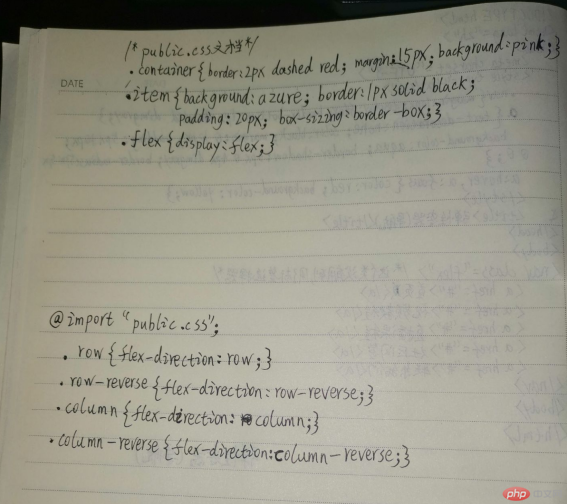 /* public.css文档*/
.container{border:2px dashed red; margin:15px; background:pink;}
DATE
.item{background:azure; border:1px solid black;
padding:20px; box-sizing:border-box;}
.flex{display:flex;}
@import "public.css";
.row{flex-direction:row;}
.row-reverse{flex-direction:row-reverse;}
.column{flex-direction:column;}
.column-reverse{flex-direction:column-reverse;}
php